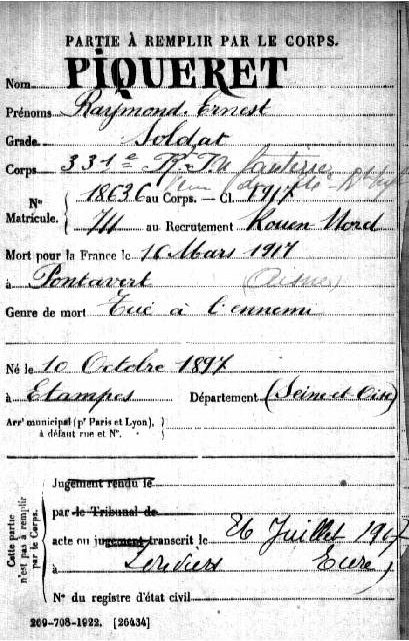 PARTIE À REMPLIR PAR LE CORPS.
Nom PIQUERET
Prénoms Raymond Ernest
Grade Soldat
Corps 331e R. Infanterie
N° Matricule. { 18636 au Corps. — Cl. 1917
711 au Recrutement Rouen Nord
Mort pour la France le 16 Mars 1917
à Pontavert (Aisne)
Genre de mort Tué à l'ennemi
Né le 10 Octobre 1897
à Etampes Département (Seine et Oise)
Arrt municipal (pr Paris et Lyon), }
à défaut rue et N°.
Cette partie n'est pas à remplir par le Corps.
Jugement rendu le
par le Tribunal de
acte ou jugement transcrit le 26 Juillet 1917
à Eure
N° du registre d'état civil
269-708-1922. [26434]